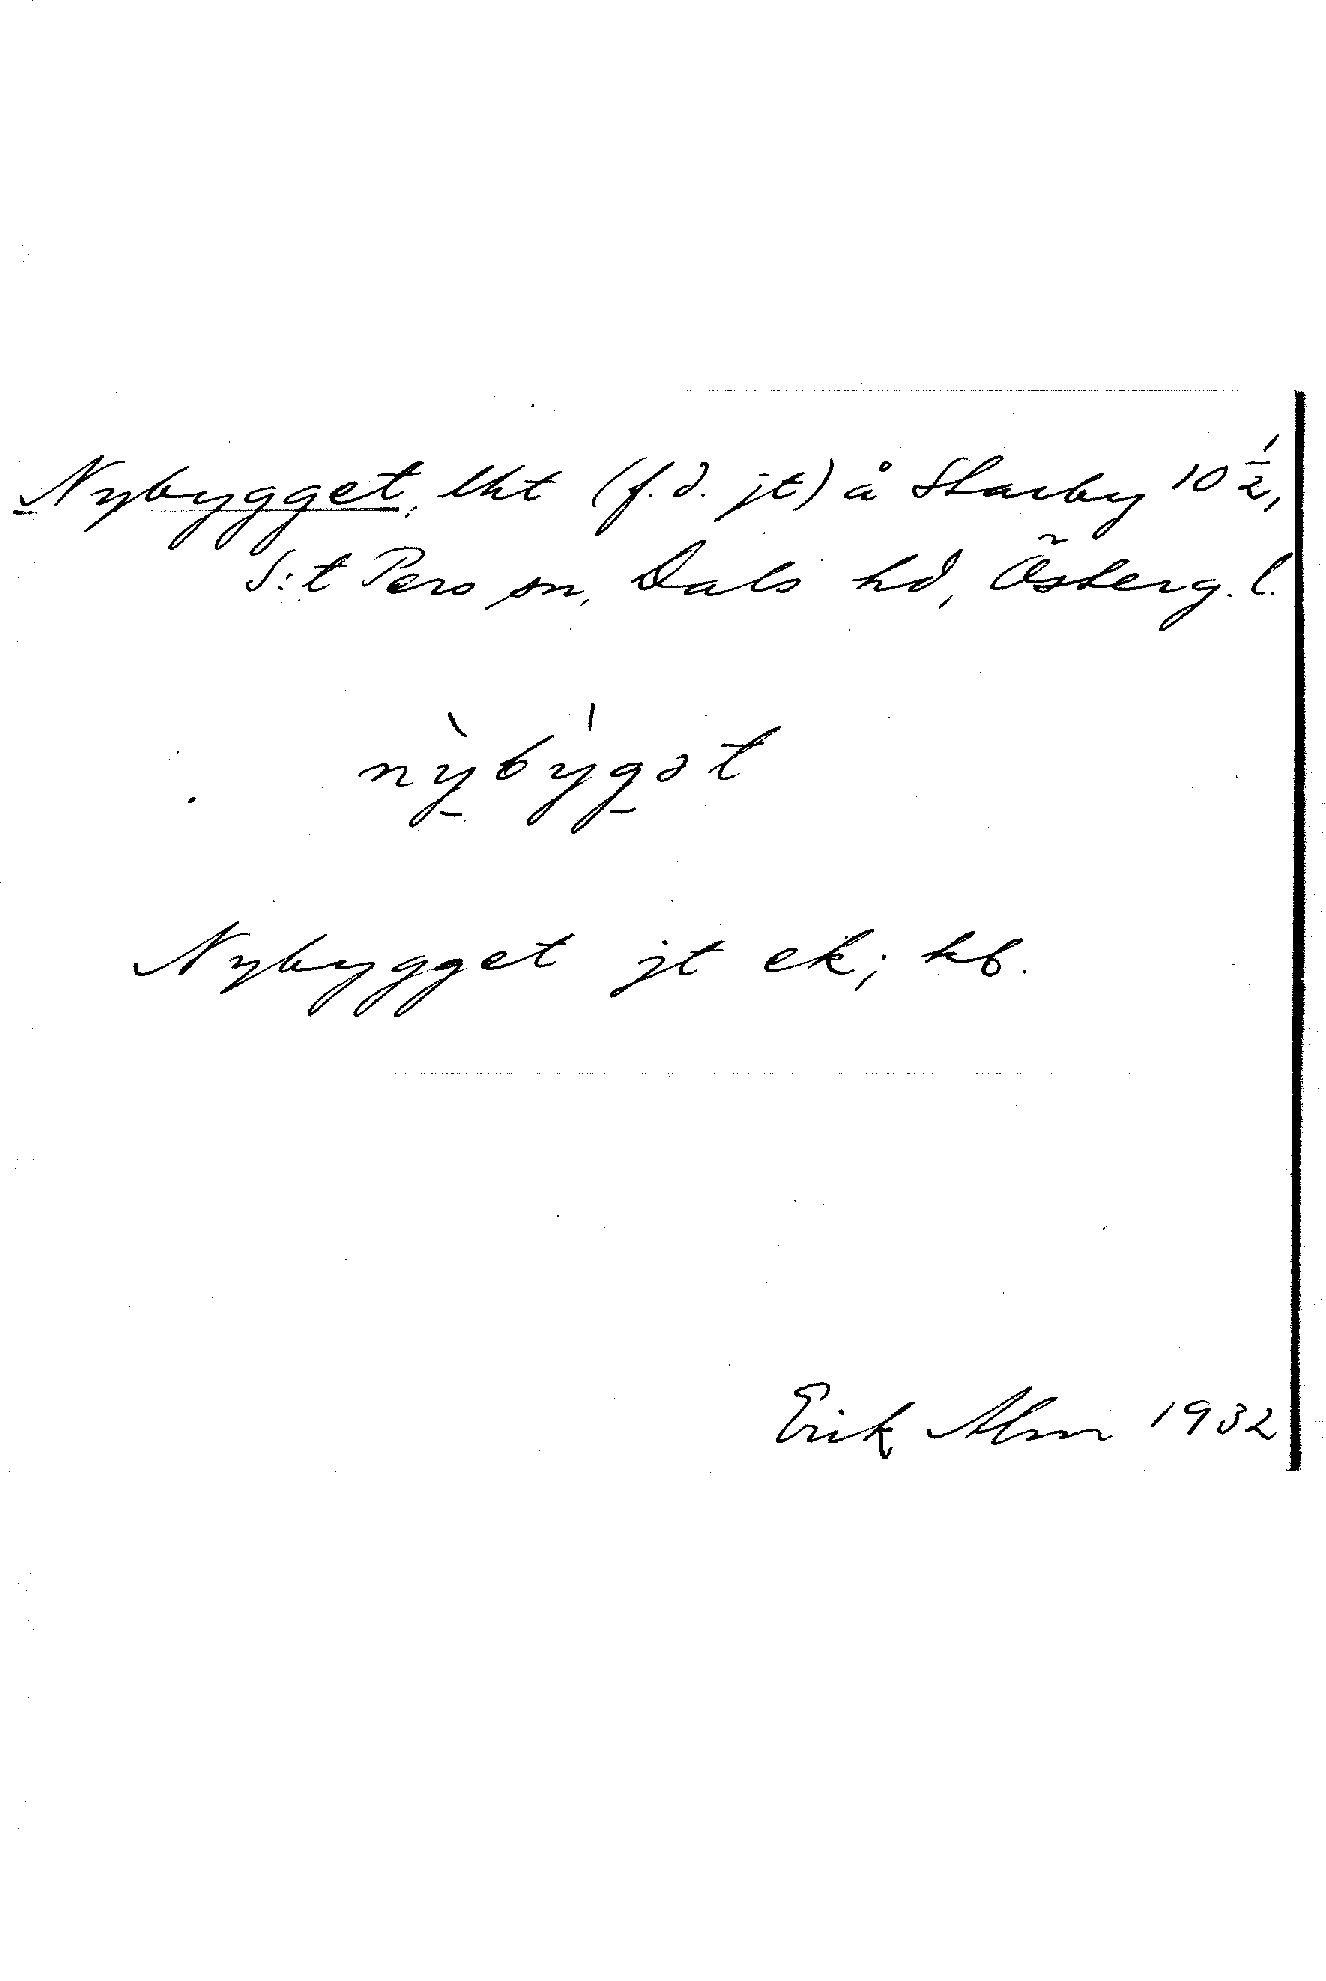 Nybygget, lht (f.d. jt) å Starby 10 1/2,
S:t Pers sn, Dals hd, Österg. l.
nỳbýgət
Nybygget jt ek; kb.
Erik Alm 1932